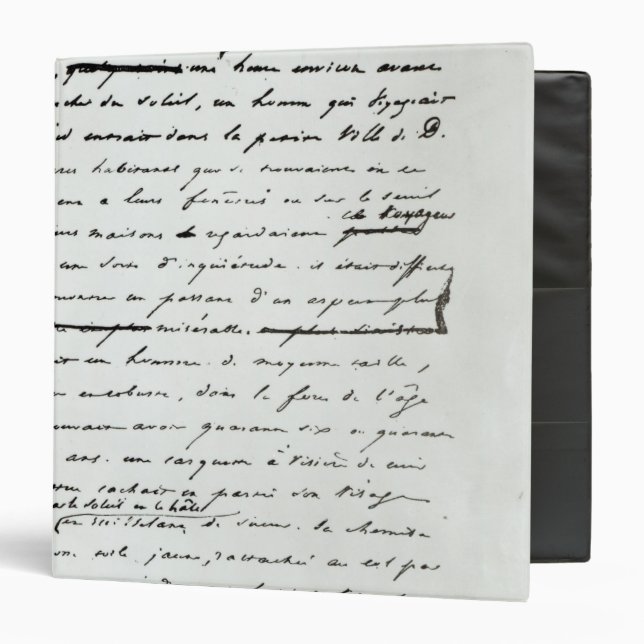 une heure environ avant
cher du soleil, un homme qui voyageait
ied entrait dans la petite ville de D.
ares habitants qui se trouvaient en ce
ent à leurs fenêtres ou sur le seuil
ce voyageur
urs maisons regardaient
une sorte d'inquiétude. il était difficile
contrer un passant d'un aspect plus
misérable.
ait un homme de moyenne taille,
et robuste, dans la force de l'âge
ouvait avoir quarante six ou quarante
ans. une casquette à visière de cuir
ttue cachait en partie son visage
par le soleil et le hâle
et ruisselant de sueur. Sa chemise
toile jaune, rattachée au col par